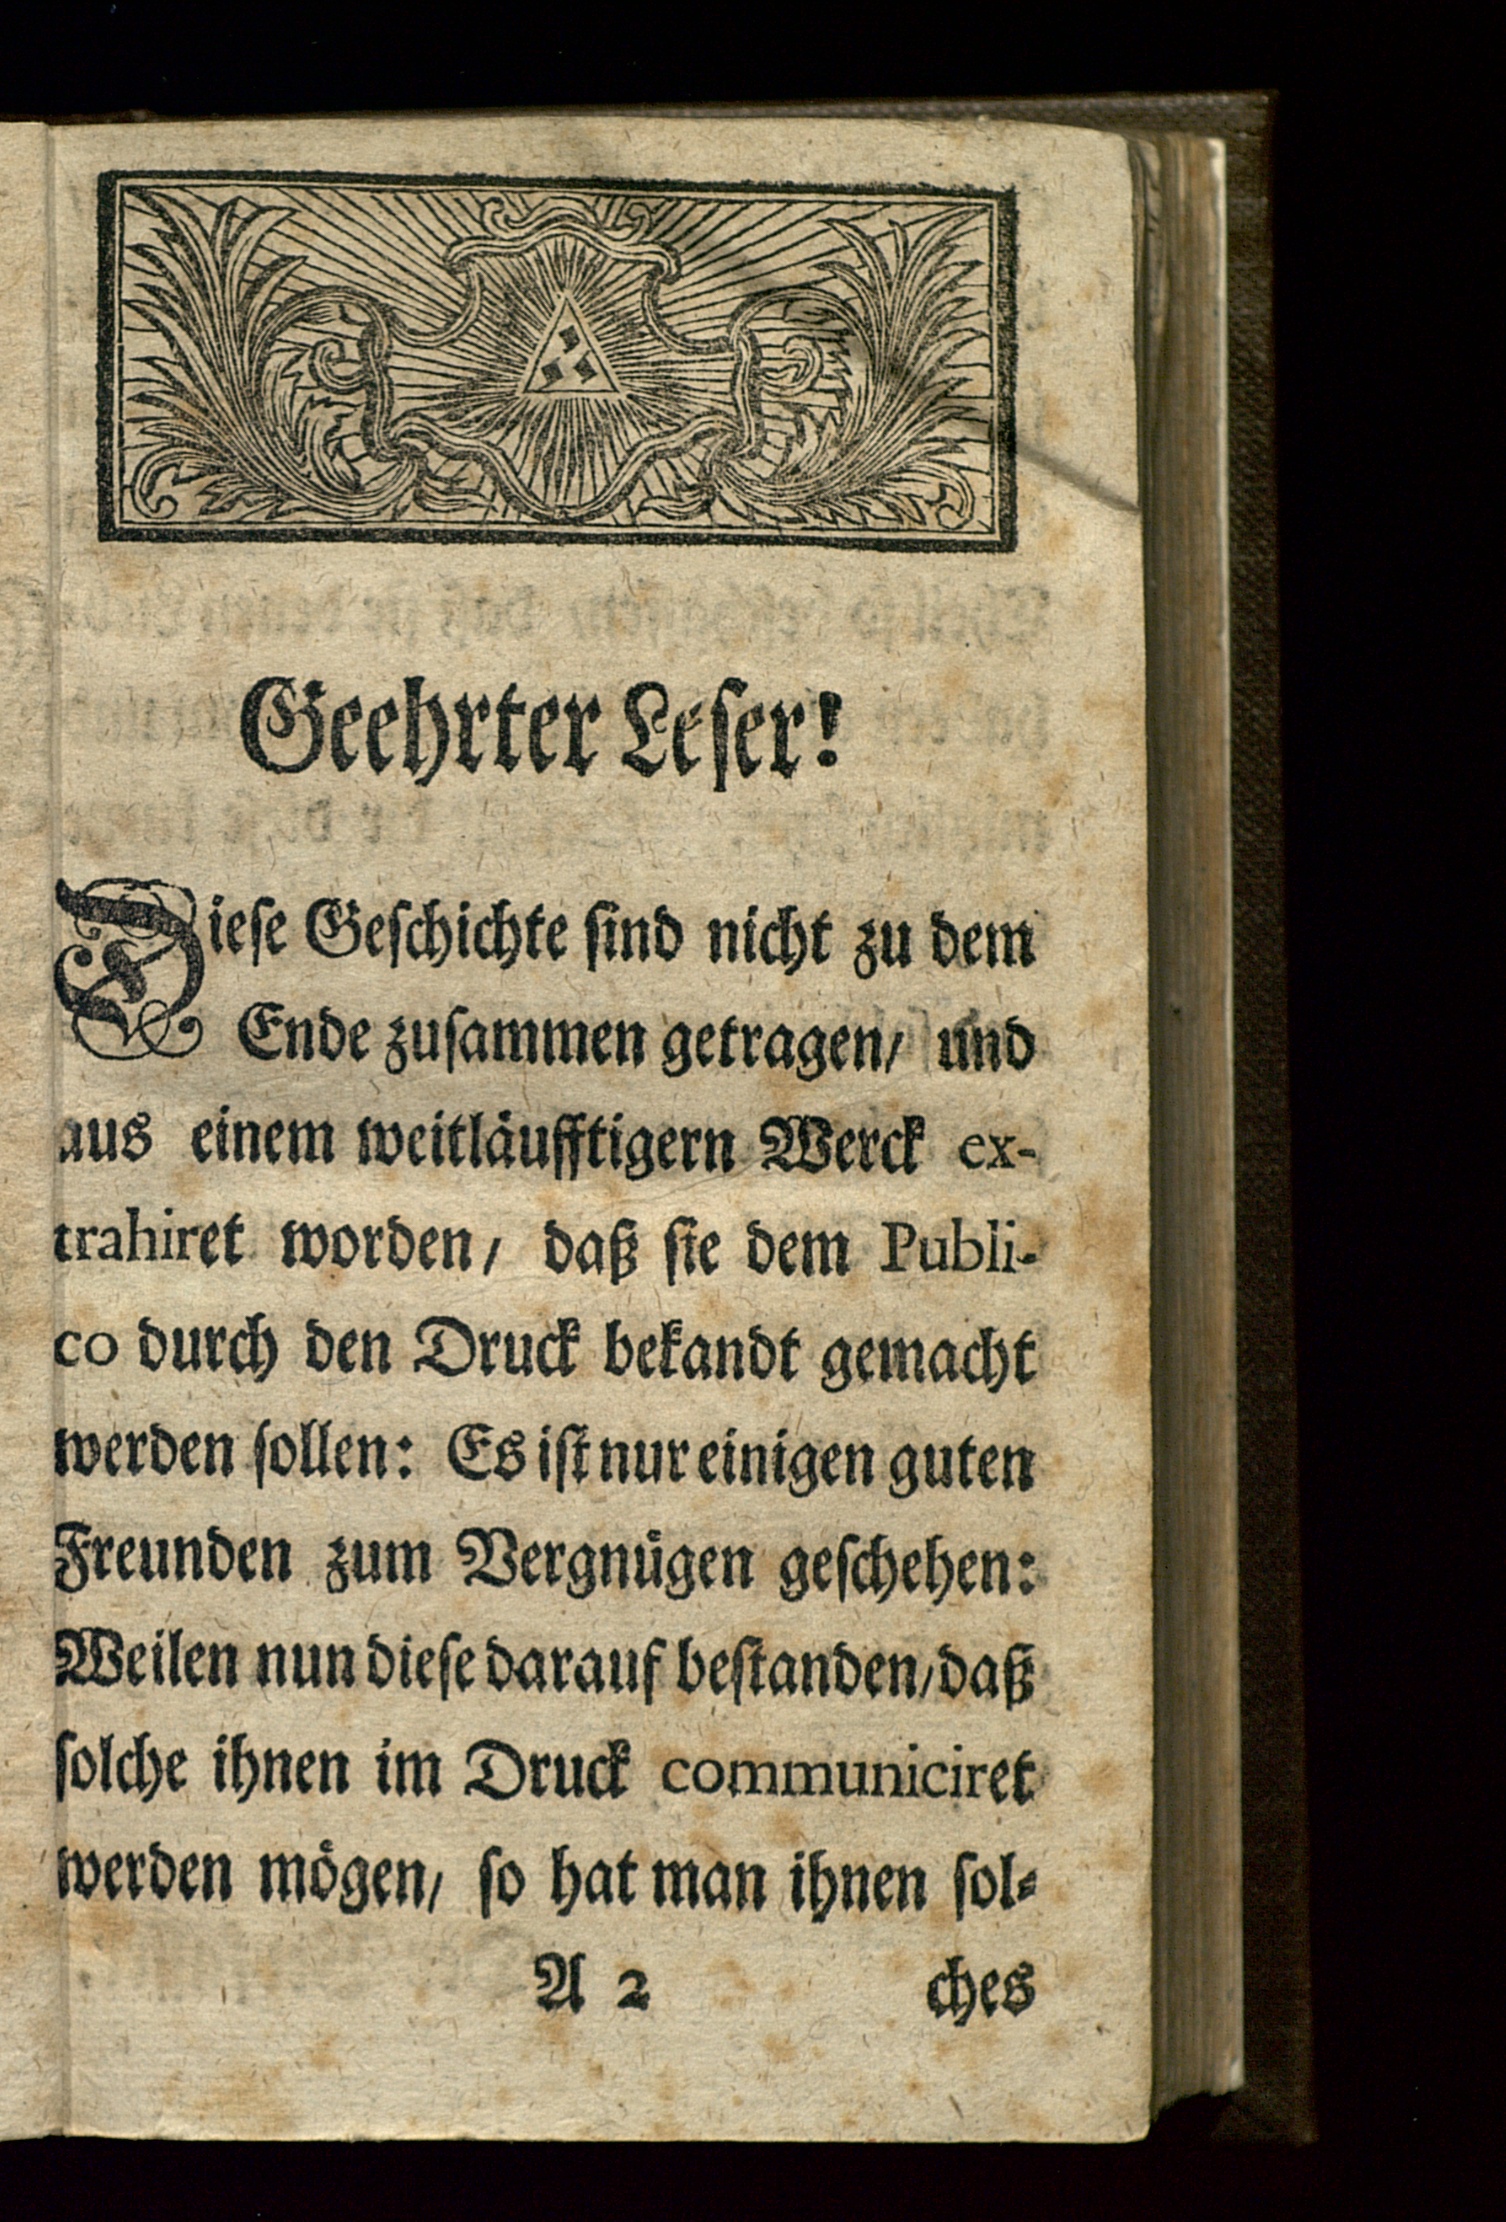 Geehrter Leser!
Dieſe Geſchichte ſind nicht zu dem
Ende zuſammen getragen/ und
aus einem weitläufftigern Werck ex-
trahiret worden/ daß ſie dem Publi-
co durch den Druck bekandt gemacht
werden ſollen: Es iſt nur einigen guten
Freunden zum Vergnuͤgen geſchehen:
Weilen nun dieſe darauf beſtanden/ daß
ſolche ihnen im Druck communiciret
werden moͤgen/ ſo hat man ihnen ſol-
A 2 ches